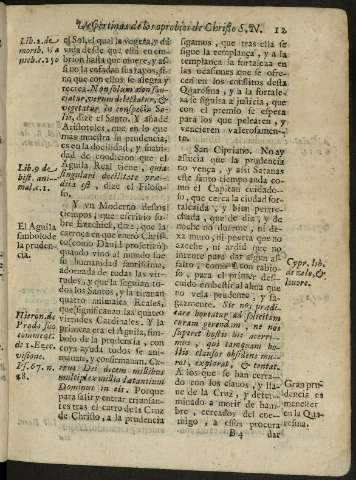 Vespertinas de los oprobios de Christo S.N. 12
Lib. 2. de
morib. Va
el Sol, el qual la vegeta, y dà
vida desde que està en em-
brion hasta que muere, y assi
si no la enfadan sus rayos, si-
no que con ellos se alegra y
recrea. Non solum non fru-
vegetatur in conspectu So-
lis, dize el Santo. Y añade
Aristoteles, que en lo que
mas muestra su prudencia,
es en la docilidad, y habili-
dad de condicion que el
Aguila Real tiene, quia
singulari docilitate præ-
dita est, dize el Filoso-
fo.
Lib. 9 de
hist. ani-
mal. c. 1.
Y vn Moderno destos
tiempos, que escriviò so-
bre Ezechiel, dize, que la
carroça en que entrò Chris-
to (como David profetizò)
quando vino al mundo fue
su humanidad santissima,
adornada de todas las vir-
tudes, y que la seguian to-
dos los Santos, y la tiravan
quatro animales Reales,
que significavan las quatro
virtudes Cardinales. Y la
primera era el Aguila, sim-
bolo de la prudencia, con
cuya ayuda todos se ani-
mavan, y consumavan. Cur-
rum Dei decem millibus
multiplex millia lætantium
Dominus in eis. Porque
para salir y entrar triunfan-
tes tras el carro de la Cruz
de Christo, a la prudencia
El Aguila
simbolo de
la pruden-
cia.
Hieron. de
Prado suo
commēt.
de 1. Ezec.
visione.
Ps. 67. n.
18.
sigamos, que tras ella se
sigue la templança, y a la
templança la fortaleza en
las ocasiones que se ofre-
cen en los conflitos desta
Quaresma, y a la fortale-
za se sigue la justicia, que
con el premio se espera
para los que pelearen, y
vencieren valerosamen-
te.
San Cipriano. No ay
astucia que la prudencia
no vença, y assi Satanas
este santo tiempo anda co-
mo el Capitan cuidado-
so, que cerca la ciudad for-
talecida, y bien pertre-
chada, que de dia, y de
noche no duerme, ni de-
xa muro, ni puerta que no
aceche, ni ardid que no
intente para dar algun as-
salto, y como Leon rabio-
so, para el primer des-
cuido embestir al alma que
no vela prudente, y sa-
gazmente. Sic nos predi-
care hortatur ad solicitam
curam gerendam, ne nos
superet hostis hic acerri-
mus, qui tamquam ho-
stis clausos obsidens mu-
ros, explorat, & tentat.
A los que se han cerra-
do con los clavos, y lla-
ve de la Cruz, y deter-
minado a morir de ham-
bre, cercados del ene-
migo, a essos procura
Cypr. lib.
de zelo, &
livore.
Gran pru-
dencia es
menester
en la Qua-
resma.
B 4 dar